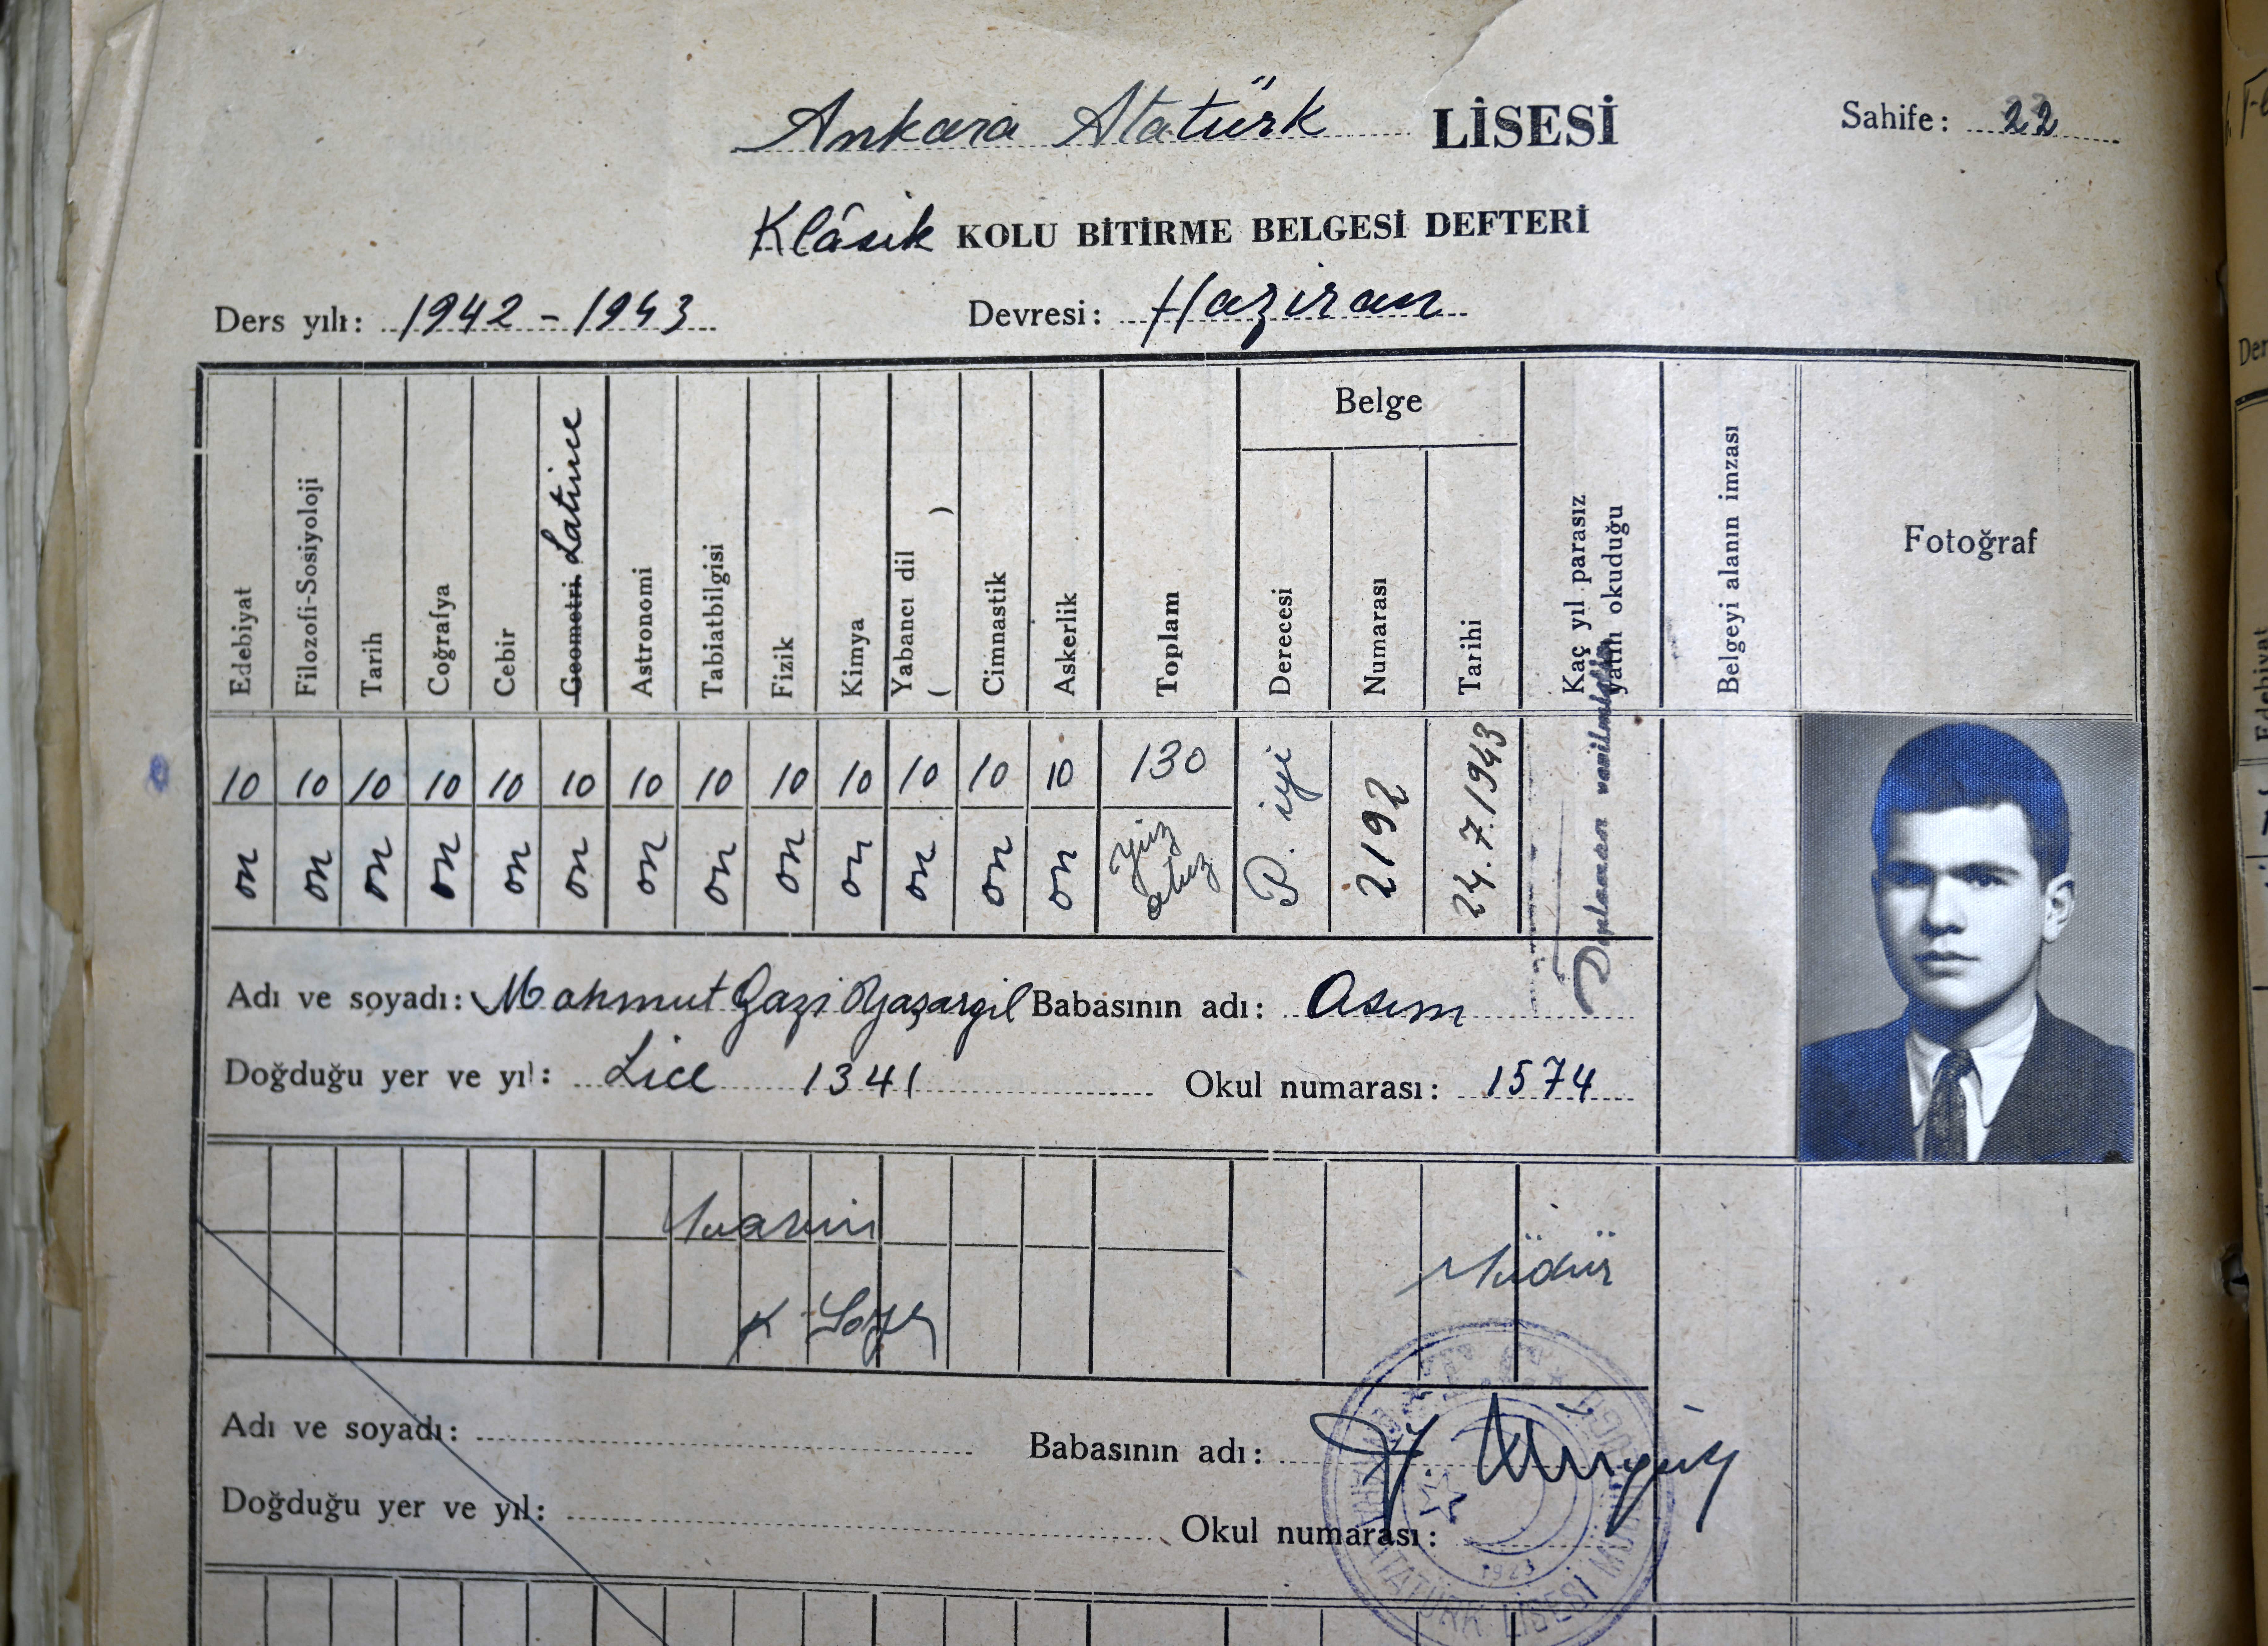 Ankara Atatürk LİSESİ
Sahife: 22
Klâsik KOLU BİTİRME BELGESİ DEFTERİ
Ders yılı: 1942 - 1943
Devresi: Haziran
Edebiyat
Filozofi-Sosiyoloji
Tarih
Coğrafya
Cebir
Geometri Latince
Astronomi
Tabiatbilgisi
Fizik
Kimya
Yabancı dil
( )
Cimnastik
Askerlik
Toplam
Belge
Derecesi
Numarası
Tarihi
Kaç yıl parasız
yatılı okuduğu
Belgeyi alanın imzası
Fotoğraf
10 10 10 10 10 10 10 10 10 10 10 10 10 130
on on on on on on on on on on on on on yüz
otuz
P. iyi
2192
24.7.1943
Diploması verilmiştir
Adı ve soyadı: Mahmut Gazi Yaşargil Babasının adı: Asım
Doğduğu yer ve yıl: Lice 1341 Okul numarası: 1574
Müdür
Adı ve soyadı: Babasının adı:
Doğduğu yer ve yıl: Okul numarası:
1923
ATATÜRK LİSESİ